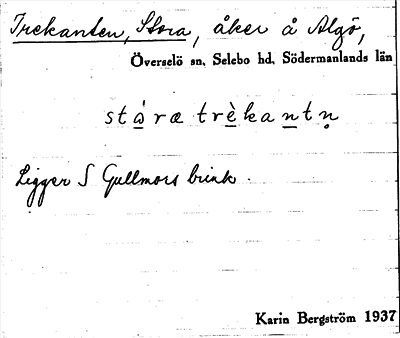 Trekanten, Stora, åker å Algö,
Överselö sn, Selebo hd, Södermanlands län
stò̱ræ trè̱kan̠tṇ
Ligger S Gullmors brink.
Karin Bergström 1937